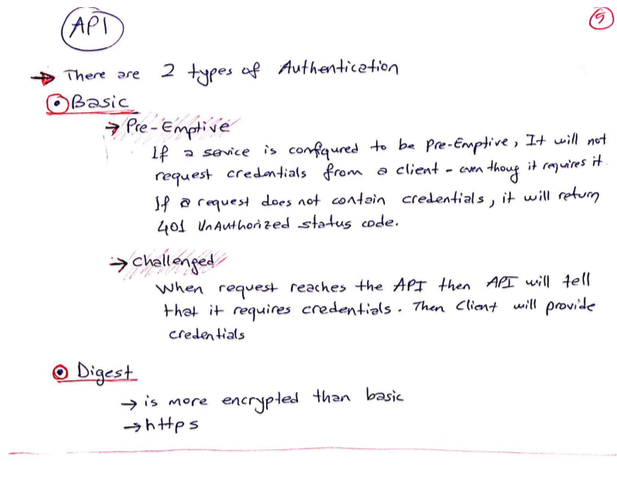 API
5
→ There are 2 types of Authentication
Basic
→ Pre-Emptive
If a service is configured to be Pre-Emptive, It will not
request credentials from a client - even thoug it requires it.
If a request does not contain credentials, it will return
401 UnAuthorized status code.
→ Challenged
When request reaches the API then API will tell
that it requires credentials. Then Client will provide
credentials
Digest
→ is more encrypted than basic
→ https